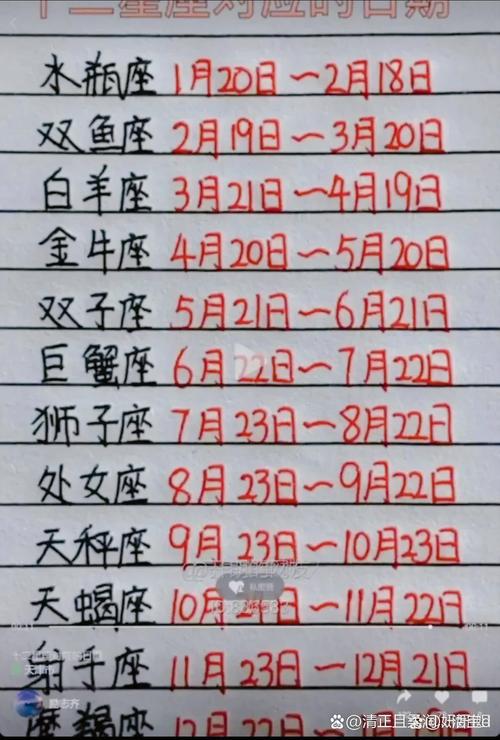 十二星座对应的日期
水瓶座 1月20日～2月18日
双鱼座 2月19日～3月20日
白羊座 3月21日～4月19日
金牛座 4月20日～5月20日
双子座 5月21日～6月21日
巨蟹座 6月22日～7月22日
狮子座 7月23日～8月22日
处女座 8月23日～9月22日
天秤座 9月23日～10月23日
天蝎座 10月24日～11月22日
射手座 11月23日～12月21日
天津市
励志齐
摩羯座 12月22日